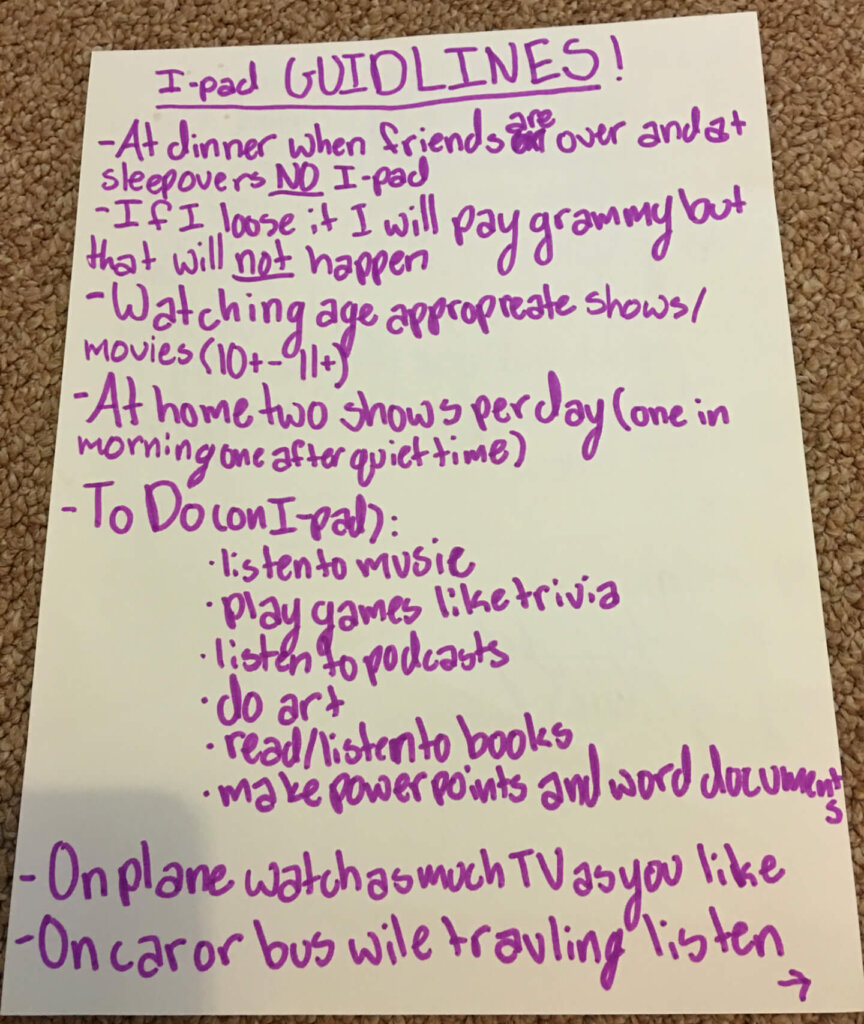 I-pad GUIDLINES!
-At dinner when friends are over and at
sleepovers NO I-pad
-If I loose it I will pay grammy but
that will not happen
-Watching age appropreate shows/
movies (10+- 11+)
-At home two shows per day (one in
morning one after quiet time)
-To Do (on I-pad):
·listen to music
·play games like trivia
·listen to podcasts
·do art
·read/listen to books
·make powerpoints and word documents
-On plane watch as much TV as you like
-On car or bus wile travling listen
→